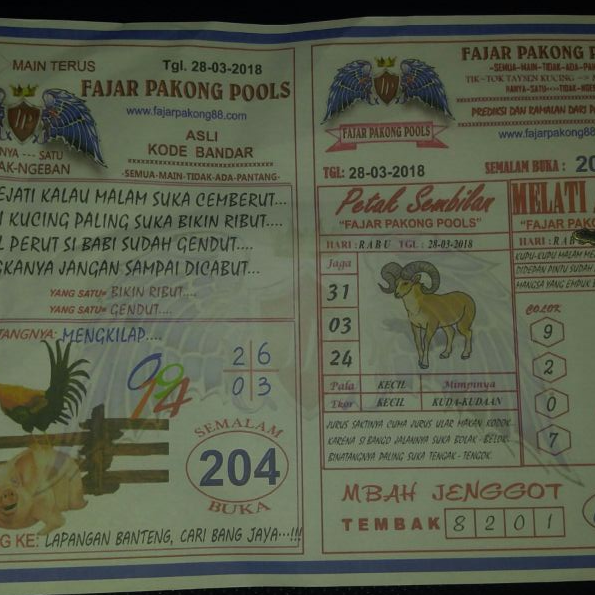 MAIN TERUS
Tgl. 28-03-2018
FAJAR PAKONG POOLS
www.fajarpakong88.com
ASLI
KODE BANDAR
-SEMUA-MAIN-TIDAK-ADA-PANTANG-
NYA --- SATU
AK-NGEBAN
EJATI KALAU MALAM SUKA CEMBERUT...
I KUCING PALING SUKA BIKIN RIBUT....
L PERUT SI BABI SUDAH GENDUT....
GKANYA JANGAN SAMPAI DICABUT...
YANG SATU= BIKIN RIBUT....
YANG SATU= GENDUT....
TANGNYA: MENGKILAP....
2 6
0 3
SEMALAM
204
BUKA
G KE: LAPANGAN BANTENG, CARI BANG JAYA...!!!
FAJAR PAKONG P
-SEMUA-MAIN-TIDAK-ADA-PAN
TIK-TOK TAYSEN KUCING
HANYA-SATU--->TIDAK-NGE
PREDIKSI DAN RAMALAN DARI
FAJAR PAKONG POOLS
www.fajarpakong88
TGL: 28-03-2018
SEMALAM BUKA : 20
Petak Sembilan
"FAJAR PAKONG POOLS"
HARI : RABU TGL : 28-03-2018
Jaga
31
03
24
Pala KECIL Mimpinya
Ekor KECIL KUDA-KUDAAN
JURUS SAKTINYA CUMA JURUS ULAR MAKAN KODOK..
KARENA SI BANGO JALANNYA SUKA BOLAK - BELOK.
BINATANGNYA PALING SUKA TENGAK - TENGOK.
MELATI
"FAJAR PAKO
HARI : RAB
KUPU-KUPU MALAM ME
DIDEPAN PINTU SUDAH
MANGSA YANG EMPUK
COLOK
9
2
0
7
MBAH JENGGOT
TEMBAK 8 2 0 1